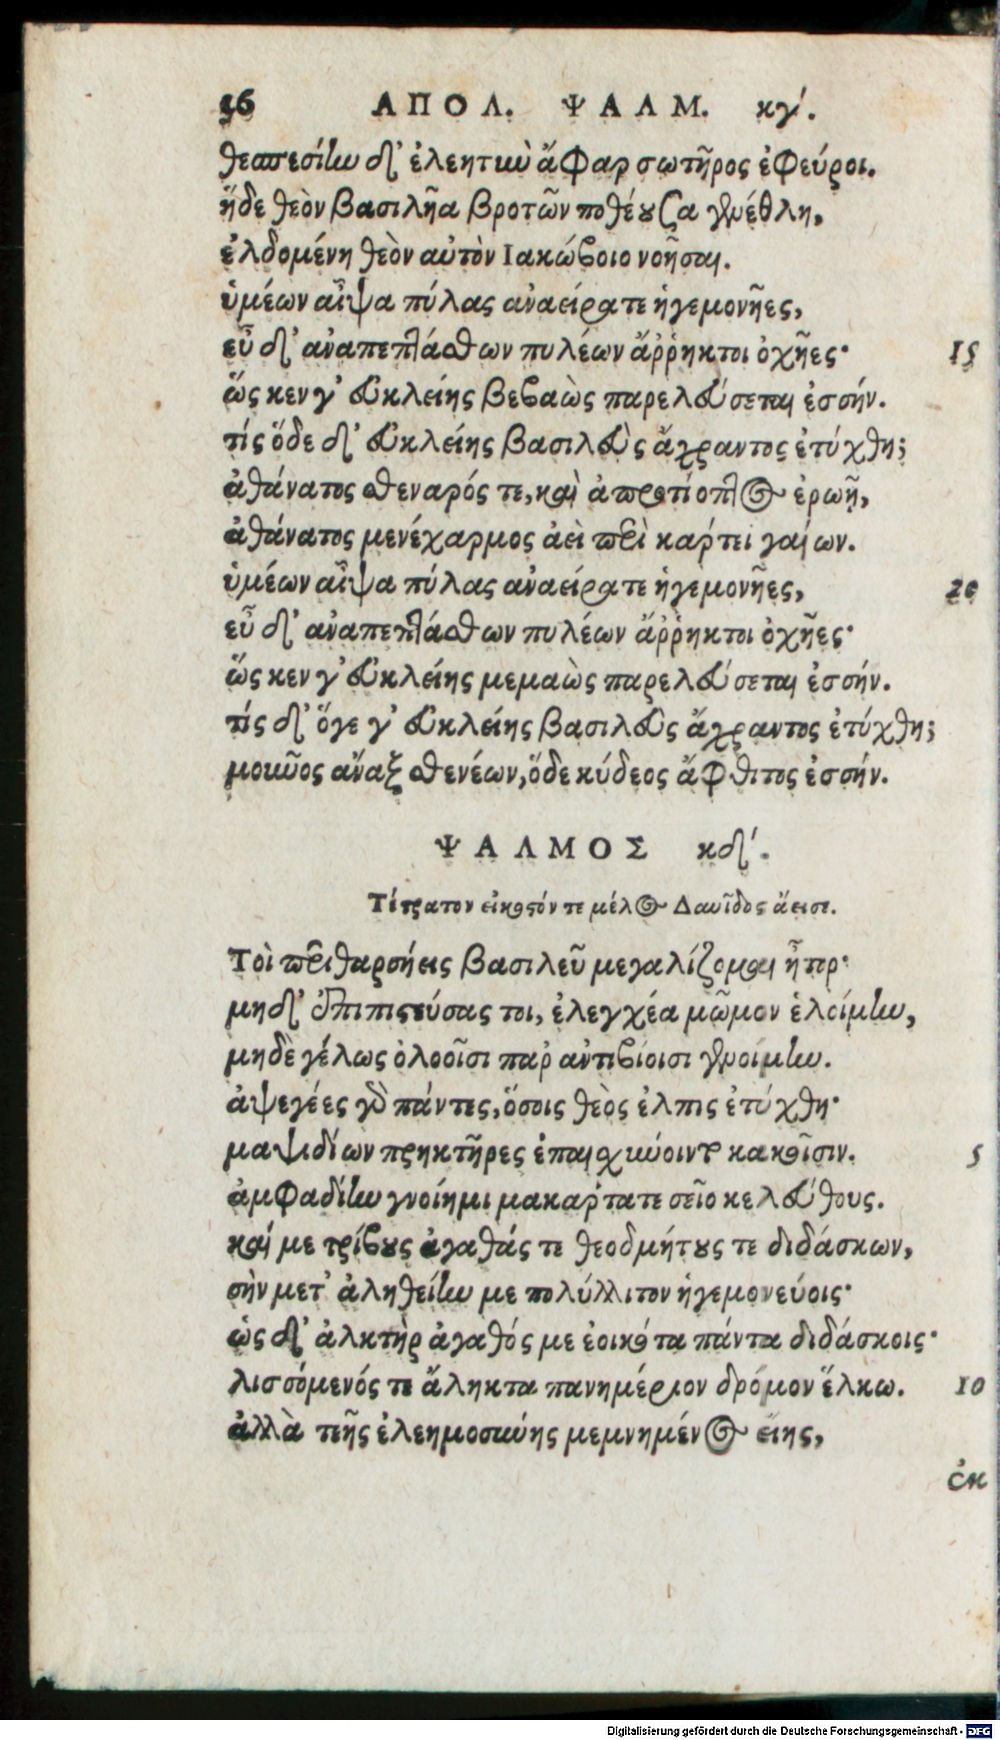 56 ΑΠΟΛ. ΨΑΛΜ. κγʹ.
θεσπεσίην δ' ἐλεητιὺ ἄφαρ σωτῆρος ἐφεύροι.
ἥδε θεὸν βασιλῆα βροτῶν ποθέουσα γενέθλη,
ἐλδομένη θεὸν αὐτὸν Ιακώβοιο νοῆσαι.
ὑμέων αἶψα πύλας ἀναείρατε ἡγεμονῆες,
εὖ δ' ἀναπεπλάσθων πυλέων ἄῤῥηκτοι ὀχῆες· 15
ὥς κεν γ' εὐκλείης βεβαὼς παρελεύσεται ἐσσήν.
τίς ὅδε δ' εὐκλείης βασιλεὺς ἄχραντος ἐτύχθη;
ἀθάνατος σθεναρός τε, καὶ ἀπροτίοπλος ἐρωῇ,
ἀθάνατος μενέχαρμος ἀεὶ περὶ κάρτεϊ γαίων.
ὑμέων αἶψα πύλας ἀναείρατε ἡγεμονῆες, 20
εὖ δ' ἀναπεπλάσθων πυλέων ἄῤῥηκτοι ὀχῆες·
ὥς κεν γ' εὐκλείης μεμαὼς παρελεύσεται ἐσσήν.
τίς δ' ὅγε γ' εὐκλείης βασιλεὺς ἄχραντος ἐτύχθη;
μοῦνος ἄναξ σθενέων, ὅδε κύδεος ἄφθιτος ἐσσήν.
ΨΑΛΜΟΣ κδʹ.
Τέτρατον εἰκοστόν τε μέλος Δαυῖδος ἄεισε.
Τοὶ περιθαρσήεις βασιλεῦ μεγαλίζομαι ἦτορ·
μηδ' ἐπιπιστεύσας τοι, ἐλεγχέα μῶμον ἑλοίμην,
μηδὲ γέλως ὀλοοῖσι παρ' ἀντιβίοισι γενοίμην.
ἀψεγέες γὰρ πάντες, ὅσοις θεὸς ἐλπὶς ἐτύχθη·
μαψιδίων πρηκτῆρες ἐπαισχύνοιντο κακοῖσιν. 5
ἀμφαδίην γνοίημι μακάρτατε σεῖο κελεύθους.
καί με τρίβους ἀγαθάς τε θεοδμήτους τε διδάσκων,
σὴν μετ' ἀληθείην με πολύλλιτον ἡγεμονεύοις·
ὡς δ' ἀλκτὴρ ἀγαθός με ἐοικότα πάντα διδάσκοις·
λισσόμενός τε ἄληκτα πανημέριον δρόμον ἕλκω. 10
ἀλλὰ τεῆς ἐλεημοσύνης μεμνημένος εἴης,
ἐκ
Digitalisierung gefördert durch die Deutsche Forschungsgemeinschaft - DFG